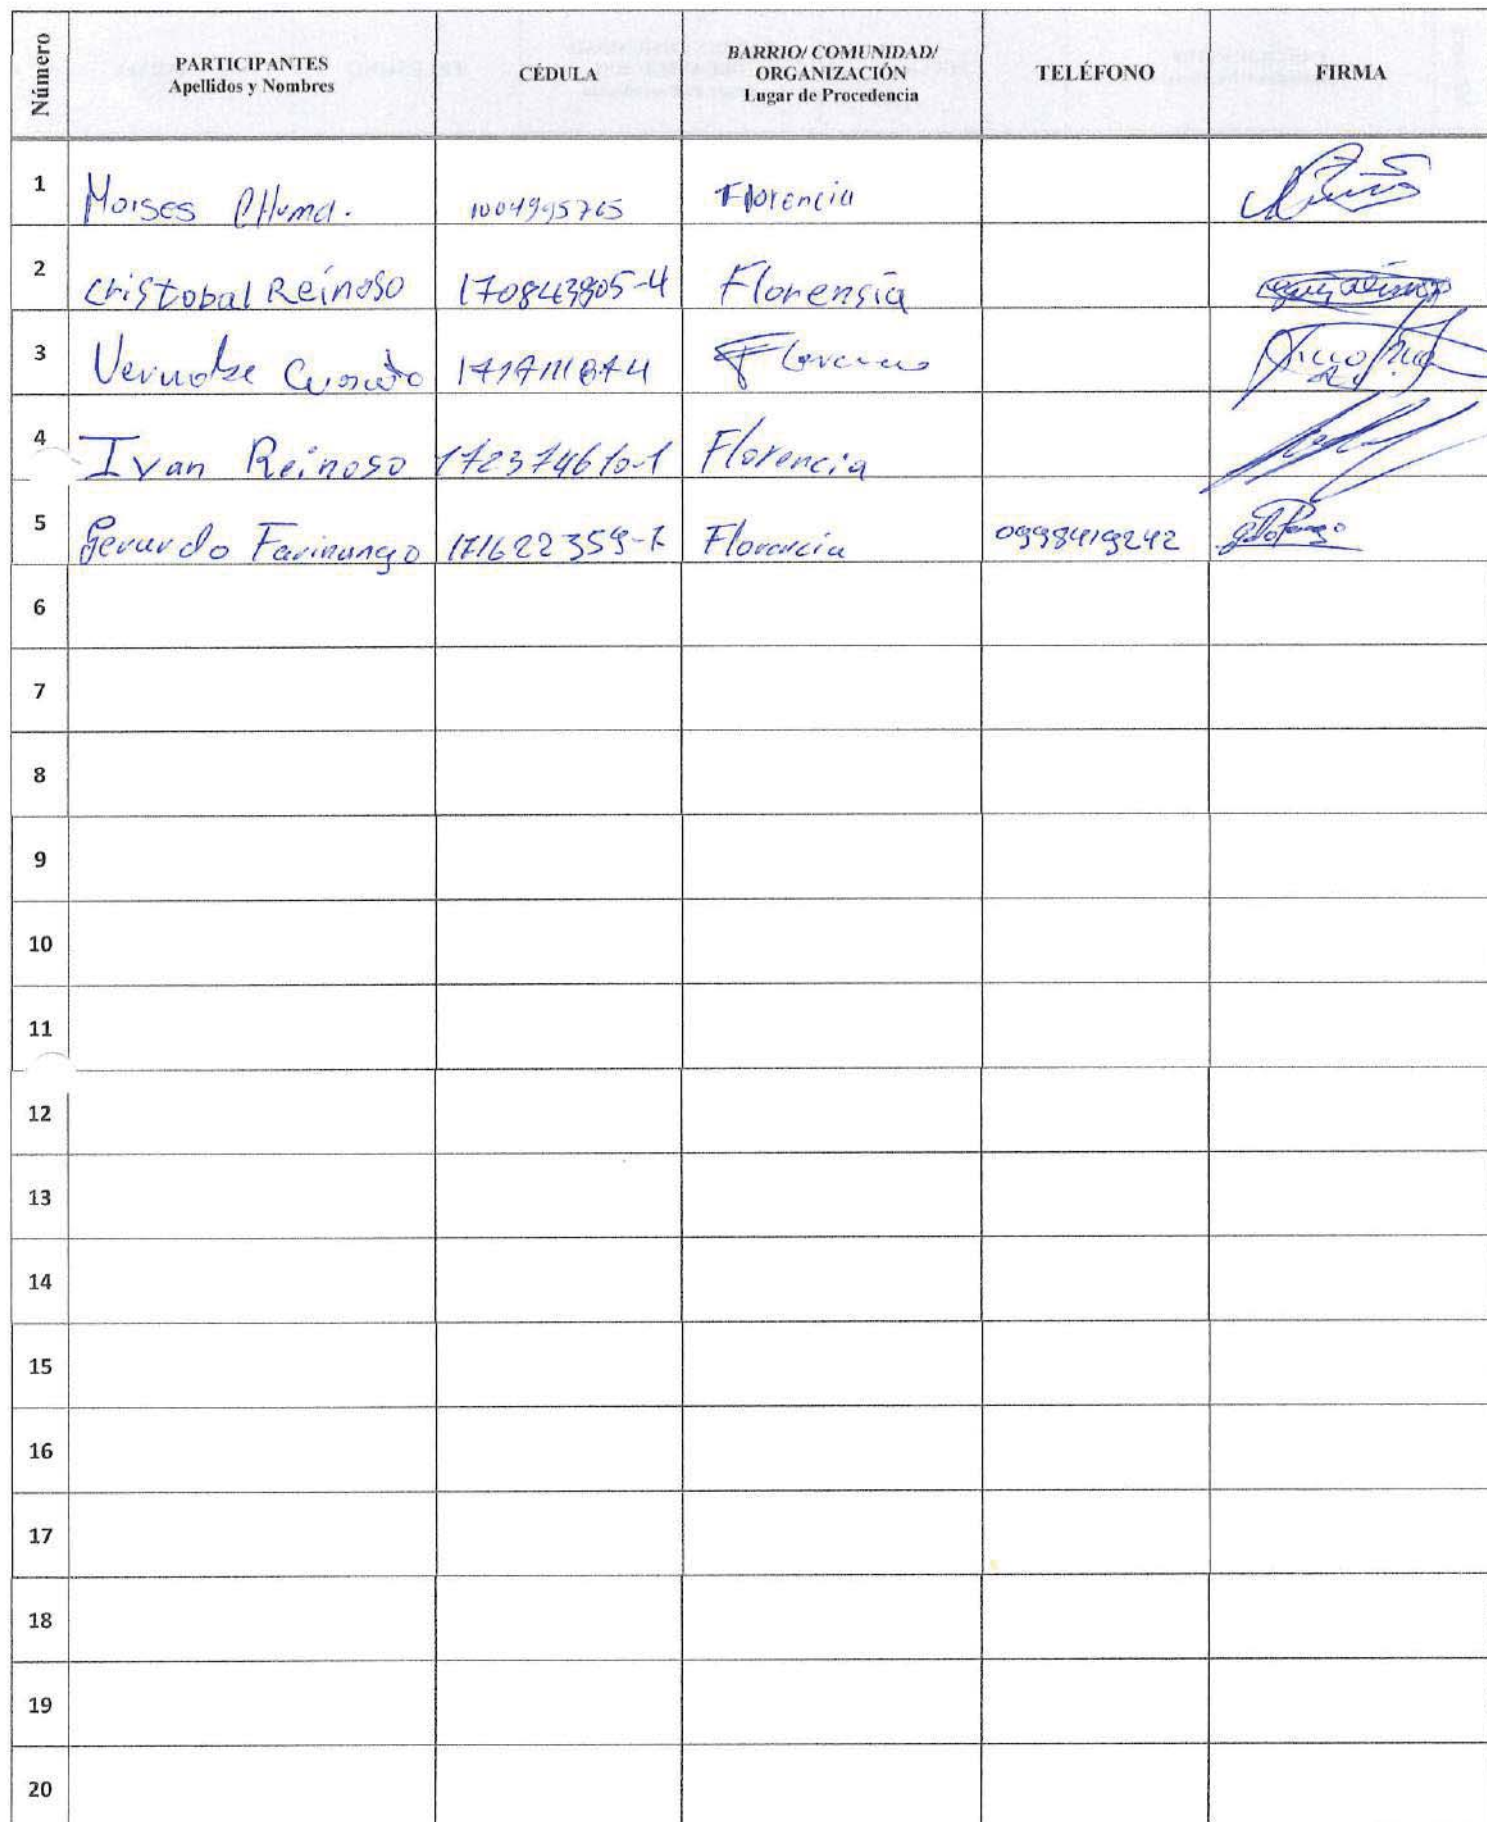 Número
PARTICIPANTES
Apellidos y Nombres
CÉDULA
BARRIO/ COMUNIDAD/
ORGANIZACIÓN
Lugar de Procedencia
TELÉFONO
FIRMA
1 Moises 1004995765 Florencia
2 Cristobal Reinoso 170843905-4 Florensia
3
4 Ivan Reinoso 172374610-1 Florencia
5 Gerardo Farinango 171622359-7 Florencia 0998419242
6
7
8
9
10
11
12
13
14
15
16
17
18
19
20